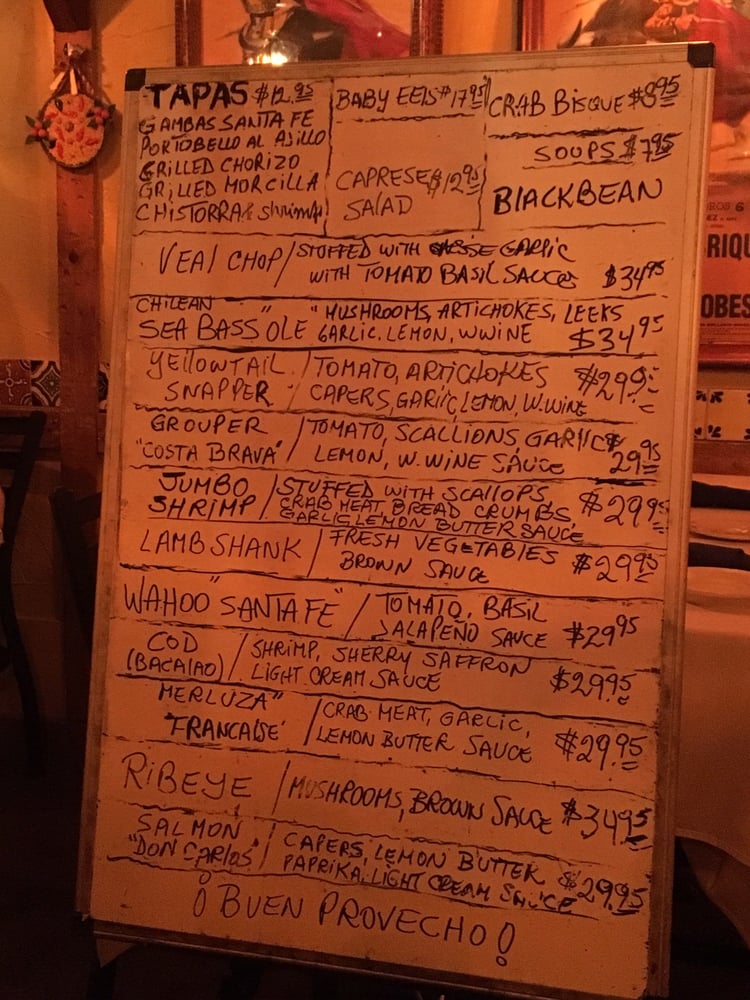 TAPAS $12.95
GAMBAS SANTA FE
PORTOBELLO AL AJILLO
GRILLED CHORIZO
GRILLED MORCILLA
CHISTORRA & shrimp
BABY EELS $17.95
CAPRESE $12.95
SALAD
CRAB BISQUE $8.95
SOUPS $7.95
BLACKBEAN
VEAL CHOP / STUFFED WITH GARLIC
WITH TOMATO BASIL SAUCE $34.95
CHILEAN
SEA BASS "OLE" MUSHROOMS, ARTICHOKES, LEEKS
GARLIC, LEMON, W.WINE $34.95
YELLOWTAIL
SNAPPER / TOMATO, ARTICHOKES
CAPERS, GARLIC, LEMON, W.WINE $29.95
GROUPER
"COSTA BRAVA" / TOMATO, SCALLIONS, GARLIC
LEMON, W.WINE SAUCE $29.95
JUMBO
SHRIMP / STUFFED WITH SCALLOPS,
CRAB MEAT, BREAD CRUMBS,
GARLIC, LEMON BUTTER SAUCE $29.95
LAMB SHANK / FRESH VEGETABLES
BROWN SAUCE $29.95
WAHOO "SANTA FE" / TOMATO, BASIL
JALAPEÑO SAUCE $29.95
COD
(BACALAO) / SHRIMP, SHERRY SAFFRON
LIGHT CREAM SAUCE $29.95
MERLUZA"
"FRANCAISE" / CRAB MEAT, GARLIC,
LEMON BUTTER SAUCE $29.95
RIBEYE / MUSHROOMS, BROWN SAUCE $34.95
SALMON
"DON CARLOS" / CAPERS, LEMON BUTTER
PAPRIKA, LIGHT CREAM SAUCE $29.95
¡BUEN PROVECHO!
RIQU
OBES